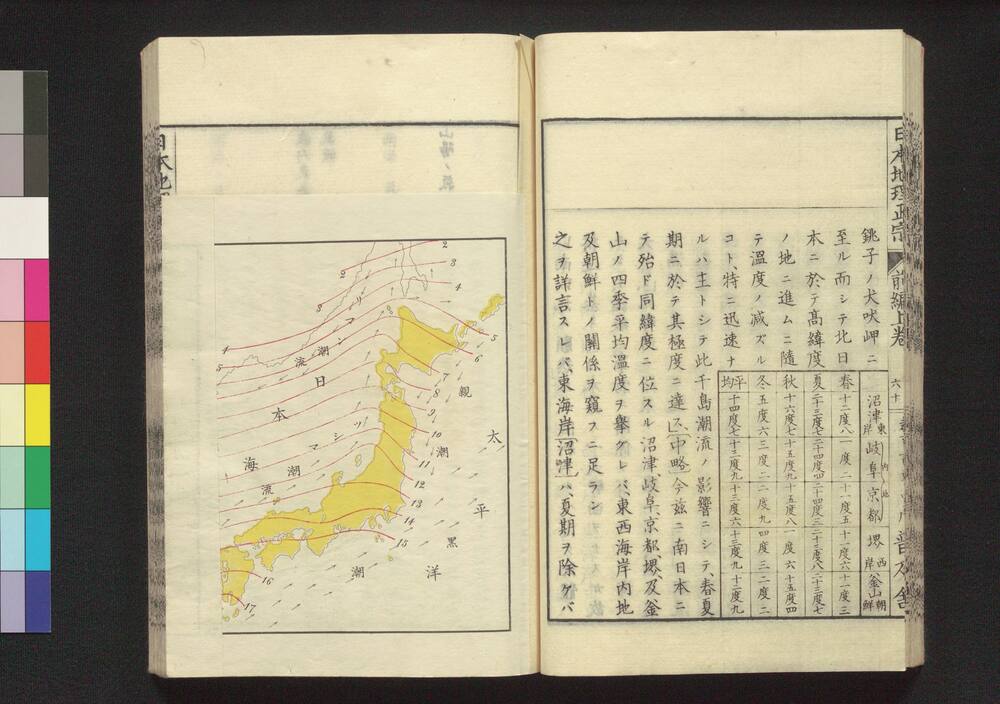 日本地理正宗
前編上卷
六十
普及舎
銚子ノ犬吠岬ニ
至ル而シテ北日
本ニ於テ高緯度
ノ地ニ進ムニ隨
テ溫度ノ減ズル
コト、特ニ迅速ナ
沼津 東岸
岐阜 京都 內地
堺 西岸
釜山 朝鮮
春 十二度八 十一度二 十一度五 十一度六 十一度三
夏 二十三度七 二十四度四 二十四度三 二十三度八 二十三度七
秋 十六度七 十五度九 十五度八 十六度六 十五度四
冬 五度六 三度二 二度九 四度三 二度二
平均 十四度七 十三度九 十三度六 十三度九 十二度九
ルハ主トシテ此千島潮流ノ影響ニシテ、春夏
期ニ於テ其極度ニ達ス、「中略」今茲ニ南日本ニ
テ殆ド同緯度ニ位スル沼津、岐阜、京都、堺、及釜
山ノ四季平均溫度ヲ擧グレバ、東西海岸內地
及朝鮮トノ關係ヲ窺フニ足ラン
之ヲ詳言スレバ、東海岸「沼津」ハ、夏期ヲ除ケバ
2
2
3
3
4
4
5
5
6
7
8
9
10
11
12
13
14
15
16
17
リマン
潮流
日本海
ツシマ
潮流
親潮
太平洋
黑潮